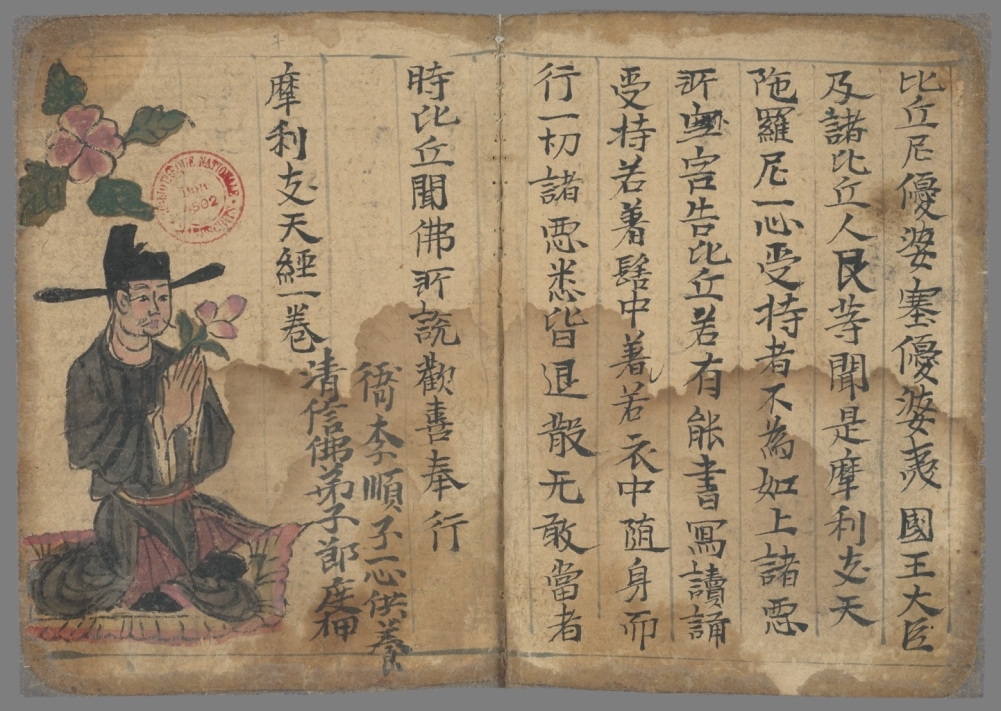 比丘尼優婆塞優婆夷國王大臣
及諸比丘人民等聞是摩利支天
陁羅尼一心受持者不為如上諸惡
所害告比丘若有能書寫讀誦
受持若著髻中著若衣中随身而
行一切諸惡悉皆退散无敢當者
時比丘聞佛所說歡喜奉行
摩利支天經一卷
清信佛弟子節度押
衙李順子一心供養
BIBLIOTHEQUE NATIONALE
DON
4502